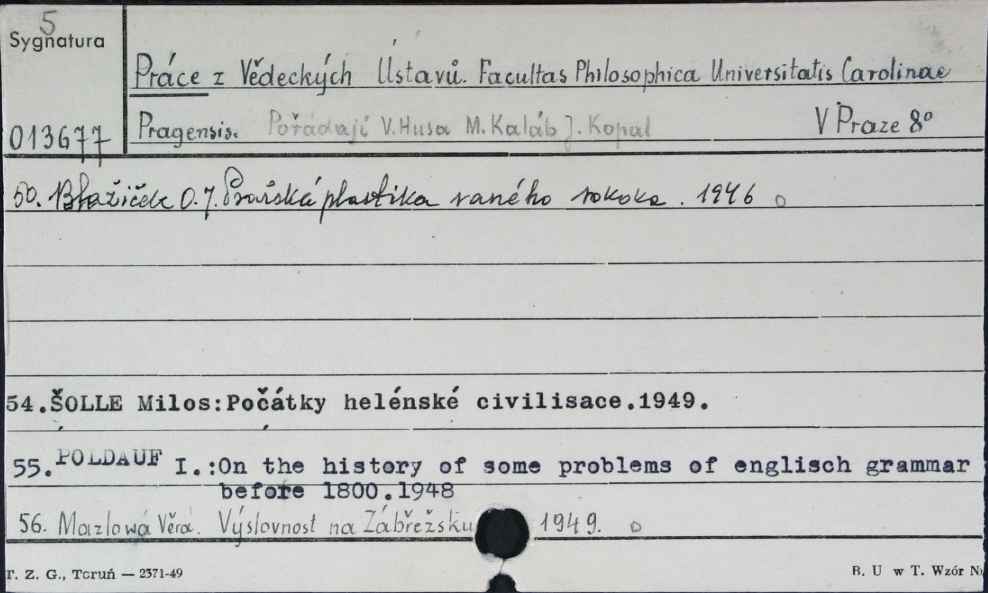 5
Sygnatura
Práce z Vědeckých Ústavů. Facultas Philosophica Universitatis Carolinae
013677
Pragensis. Pořádají V. Husa M. Kaláb J. Kopal V Praze 8°
50. Blažiček O. J. Pražská plastika raného rokoka. 1946
54.ŠOLLE Milos:Počátky helénské civilisace.1949.
55. POLDAUF I.:On the history of some problems of englisch grammar
before 1800.1948
56. Mazlowá Věra. Výslovnost na Zábřežsku 1949.
T. Z. G., Toruń — 2371-49
B. U w T. Wzór N